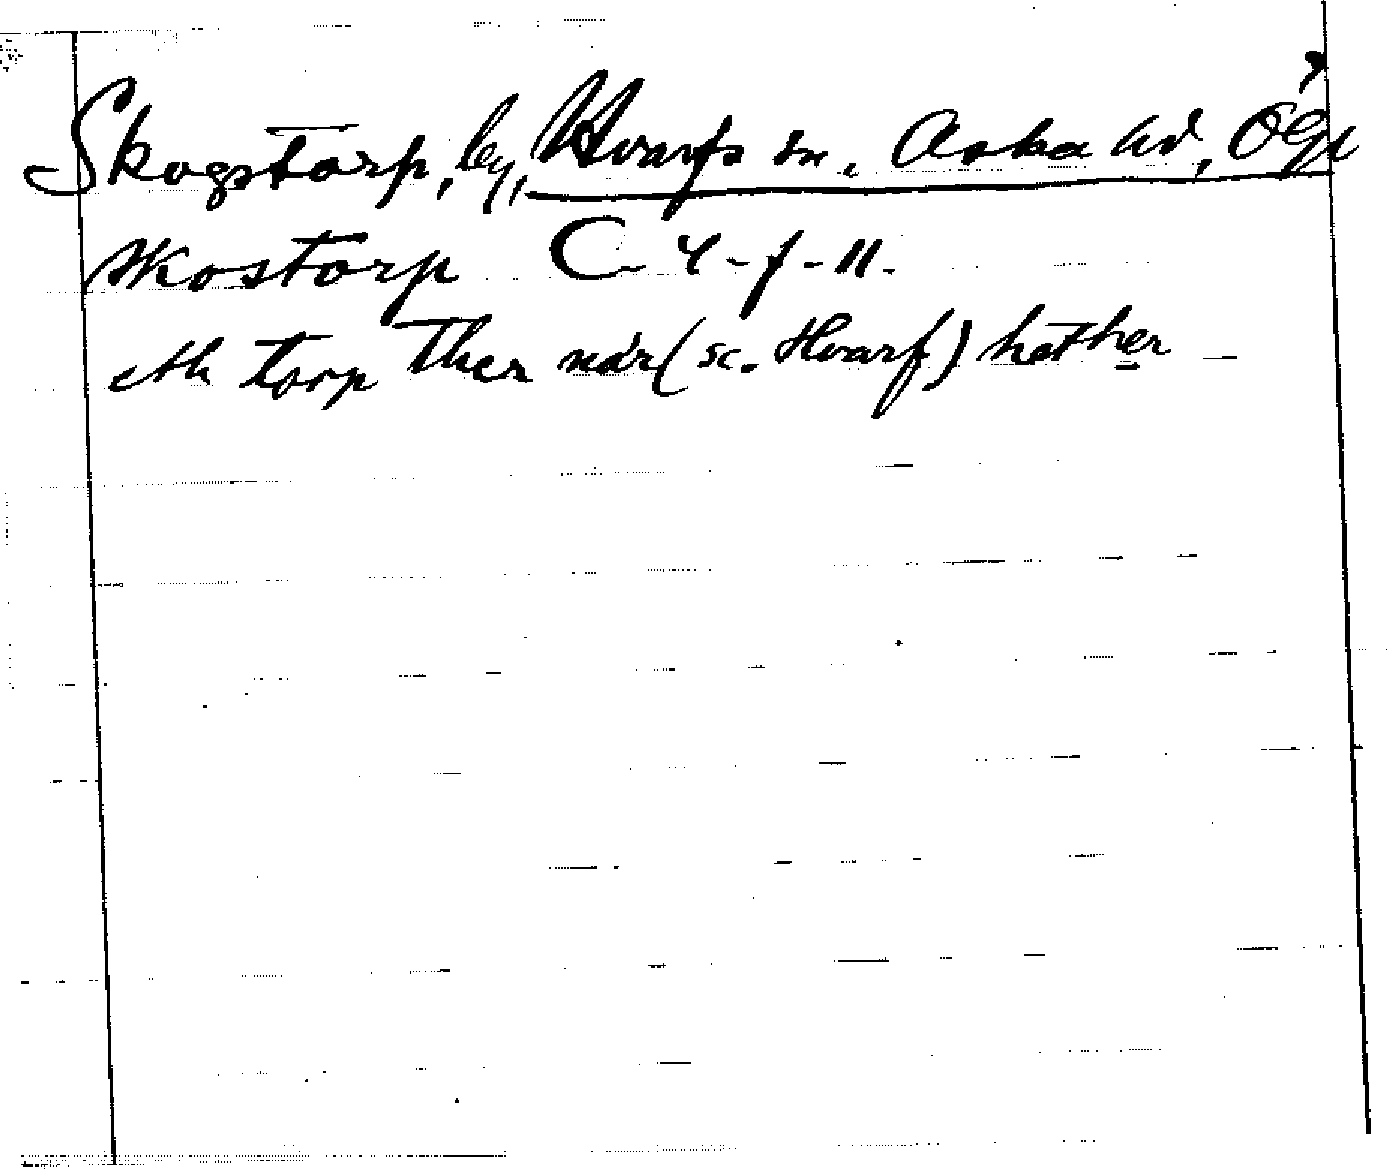 Skogstorp, by, Hvarfs sn, Aska hd, Ög
skostorp C 4-f-11.
eth torp ther nær (sc. Hvarf) hether